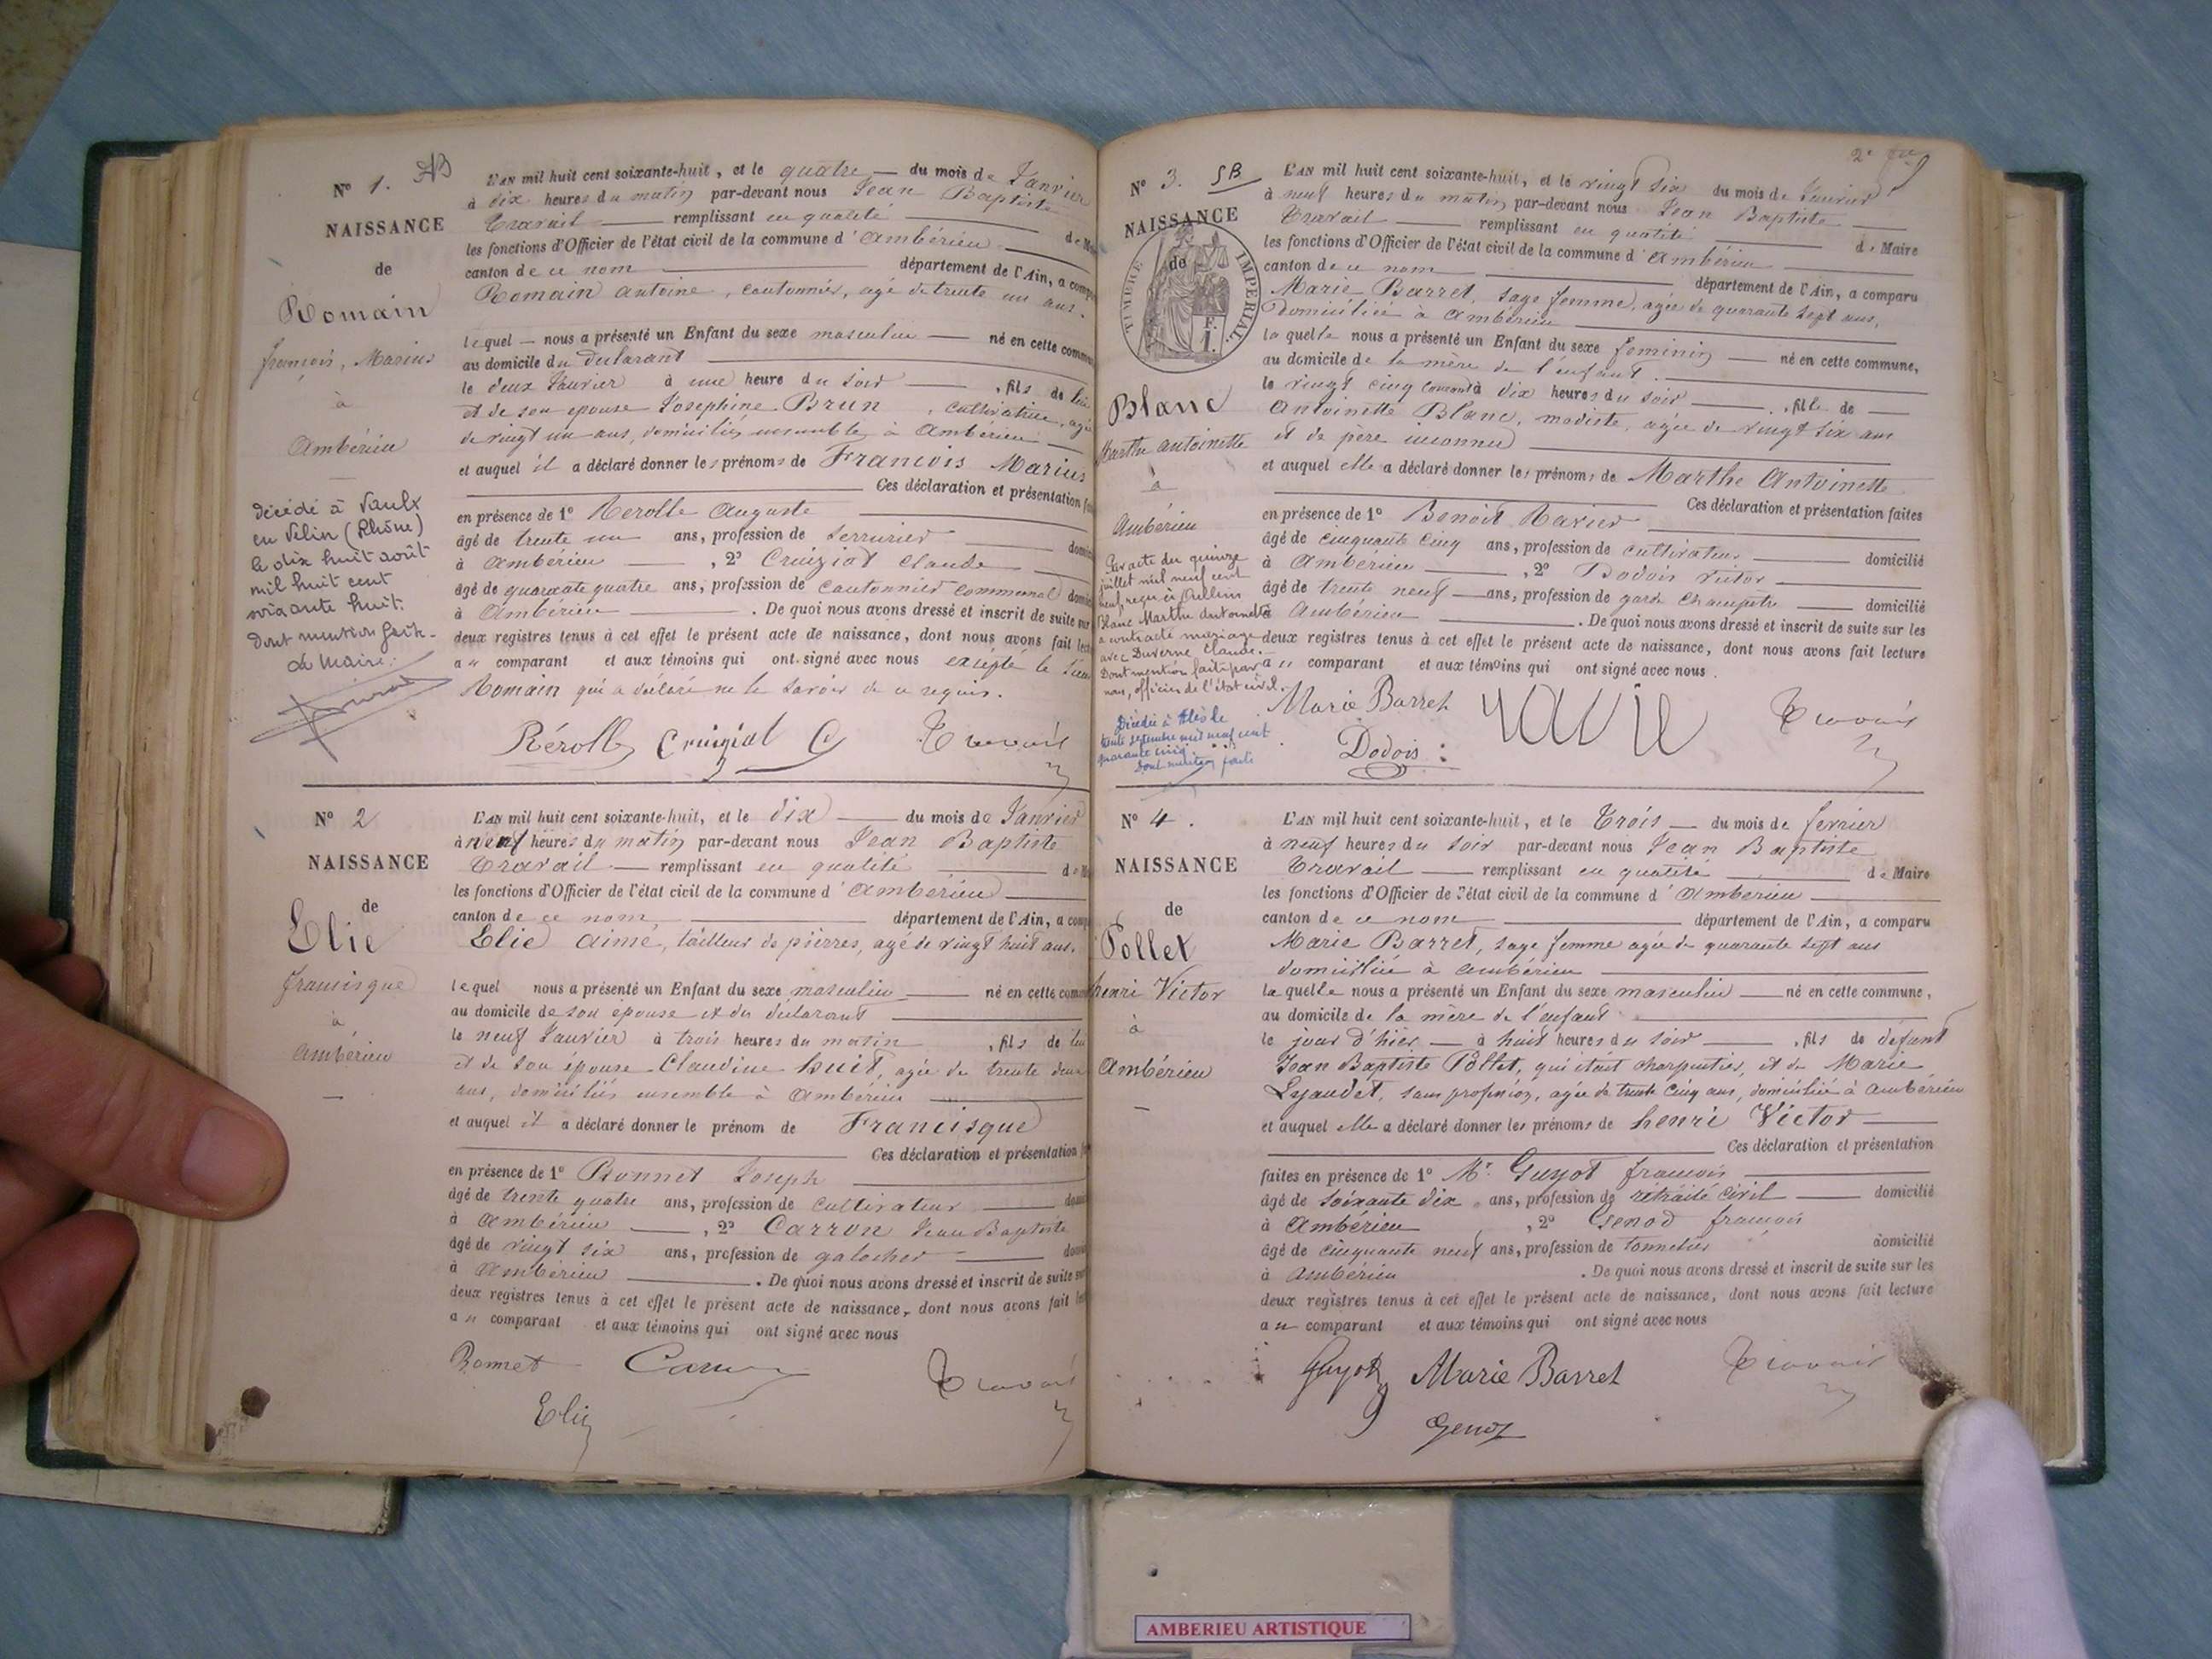 N° 1.
NAISSANCE
de
Romain
françois, Marius
à
Ambérieu
décédé à Vaulx
en Velin (Rhône)
le dix huit août
mil huit cent
soixante huit.
dont mention faite.
Le Maire.
L'AN mil huit cent soixante-huit, et le quatre du mois de Janvier
à dix heures du matin par-devant nous Jean Baptiste
Travail remplissant en qualité de
les fonctions d'Officier de l'état civil de la commune d'Ambérieu
canton de ce nom département de l'Ain, a comp
Romain antoine, cantonnier, agé de trente un ans.
lequel nous a présenté un Enfant du sexe masculin né en cette commu
au domicile du déclarant
le deux Janvier à une heure du soir, fils de lui
et de son épouse Josephine Brun, cultivatrice, agée
de vingt un ans, domiciliés ensemble à Ambérieu
et auquel il a déclaré donner les prénoms de François Marius
Ces déclaration et présentation
en présence de 1° Rerolle Auguste
âgé de trente un ans, profession de serrurier
à Ambérieu, 2° Cruiziat Claude
âgé de quarante quatre ans, profession de cantonnier communal
à Ambérieu. De quoi nous avons dressé et inscrit de suite sur
deux registres tenus à cet effet le présent acte de naissance, dont nous avons fait lect
au comparant et aux témoins qui ont signé avec nous excepté le Sieur
Romain qui a déclaré ne le savoir de ce requis.
Rérolle Cruiziat C Travail
N° 2
NAISSANCE
de
Elie
francisque
à
Ambérieu
L'AN mil huit cent soixante-huit, et le dix du mois de Janvier
à neuf heures du matin par-devant nous Jean Baptiste
Travail remplissant en qualité de
les fonctions d'Officier de l'état civil de la commune d'Ambérieu
canton de ce nom département de l'Ain, a comp
Elie aimé, tailleur de pierres, agé de vingt huit ans.
lequel nous a présenté un Enfant du sexe masculin né en cette comm
au domicile de son épouse et du déclarant
le neuf Janvier à trois heures du matin, fils de lui
et de son épouse Claudine huit, agée de trente deux
ans, domiciliés ensemble à Ambérieu
et auquel il a déclaré donner le prénom de Francisque
Ces déclaration et présentation
en présence de 1° Bonnet Joseph
âgé de trente quatre ans, profession de cultivateur
à Ambérieu, 2° Carron Jean Baptiste
âgé de vingt six ans, profession de galocher
à Ambérieu. De quoi nous avons dressé et inscrit de suite sur
deux registres tenus à cet effet le présent acte de naissance, dont nous avons fait lec
au comparant et aux témoins qui ont signé avec nous
Bonnet Travail
Elie
2e
N° 3.
NAISSANCE
de
TIMBRE IMPERIAL
Blanc
Marthe antoinette
à
Ambérieu
Par acte du quinze
juillet mil neuf cent
neuf reçu à Oullins
Blanc Marthe Antoinette
a contracté mariage
avec Duverne Claude.
Dont mention faite par
nous, officier de l'état civil.
Décédée à
septembre mil neuf cent
quarante cinq
dont mention faite
L'AN mil huit cent soixante-huit, et le vingt six du mois de Janvier
à neuf heures du matin par-devant nous Jean Baptiste
Travail remplissant en qualité de Maire
les fonctions d'Officier de l'état civil de la commune d'Ambérieu
canton de ce nom département de l'Ain, a comparu
Marie Barret, sage femme, agée de quarante sept ans,
domiciliée à Ambérieu
laquelle nous a présenté un Enfant du sexe feminin né en cette commune,
au domicile de la mère de l'enfant.
le vingt cinq courant à dix heures du soir, fille de
Antoinette Blanc, modiste, agée de vingt six ans
et de père inconnu
et auquel elle a déclaré donner les prénoms de Marthe Antoinette
Ces déclaration et présentation faites
en présence de 1° Benoit Ravier
âgé de cinquante cinq ans, profession de cultivateur domicilié
à Ambérieu, 2° Dodois victor
âgé de trente neuf ans, profession de garde champêtre domicilié
à Ambérieu. De quoi nous avons dressé et inscrit de suite sur les
deux registres tenus à cet effet le présent acte de naissance, dont nous avons fait lecture
a comparant et aux témoins qui ont signé avec nous.
Marie Barret Travail
Dodois
N° 4.
NAISSANCE
de
Pollet
henri Victor
à
Ambérieu
L'AN mil huit cent soixante-huit, et le Trois du mois de fevrier
à neuf heures du soir par-devant nous Jean Baptiste
Travail remplissant en qualité de Maire
les fonctions d'Officier de l'état civil de la commune d'Ambérieu
canton de ce nom département de l'Ain, a comparu
Marie Barret, sage femme agée de quarante sept ans
domiciliée à Ambérieu
laquelle nous a présenté un Enfant du sexe masculin né en cette commune,
au domicile de la mère de l'enfant
le jour d'hier à huit heures du soir, fils de défunt
Jean Baptiste Pollet, qui était charpentier, et de Marie
Lyaudet, sans profession, agée de trente cinq ans, domiciliée à Ambérieu
et auquel elle a déclaré donner les prénoms de henri Victor
Ces déclaration et présentation
faites en présence de 1° Mr. Guyot françois
âgé de soixante dix ans, profession de retraité civil domicilié
à Ambérieu, 2° Genod françois
âgé de cinquante neuf ans, profession de tonnelier domicilié
à Ambérieu. De quoi nous avons dressé et inscrit de suite sur les
deux registres tenus à cet effet le présent acte de naissance, dont nous avons fait lecture
au comparant et aux témoins qui ont signé avec nous
Guyot Marie Barret Travail
Genod
AMBERIEU ARTISTIQUE